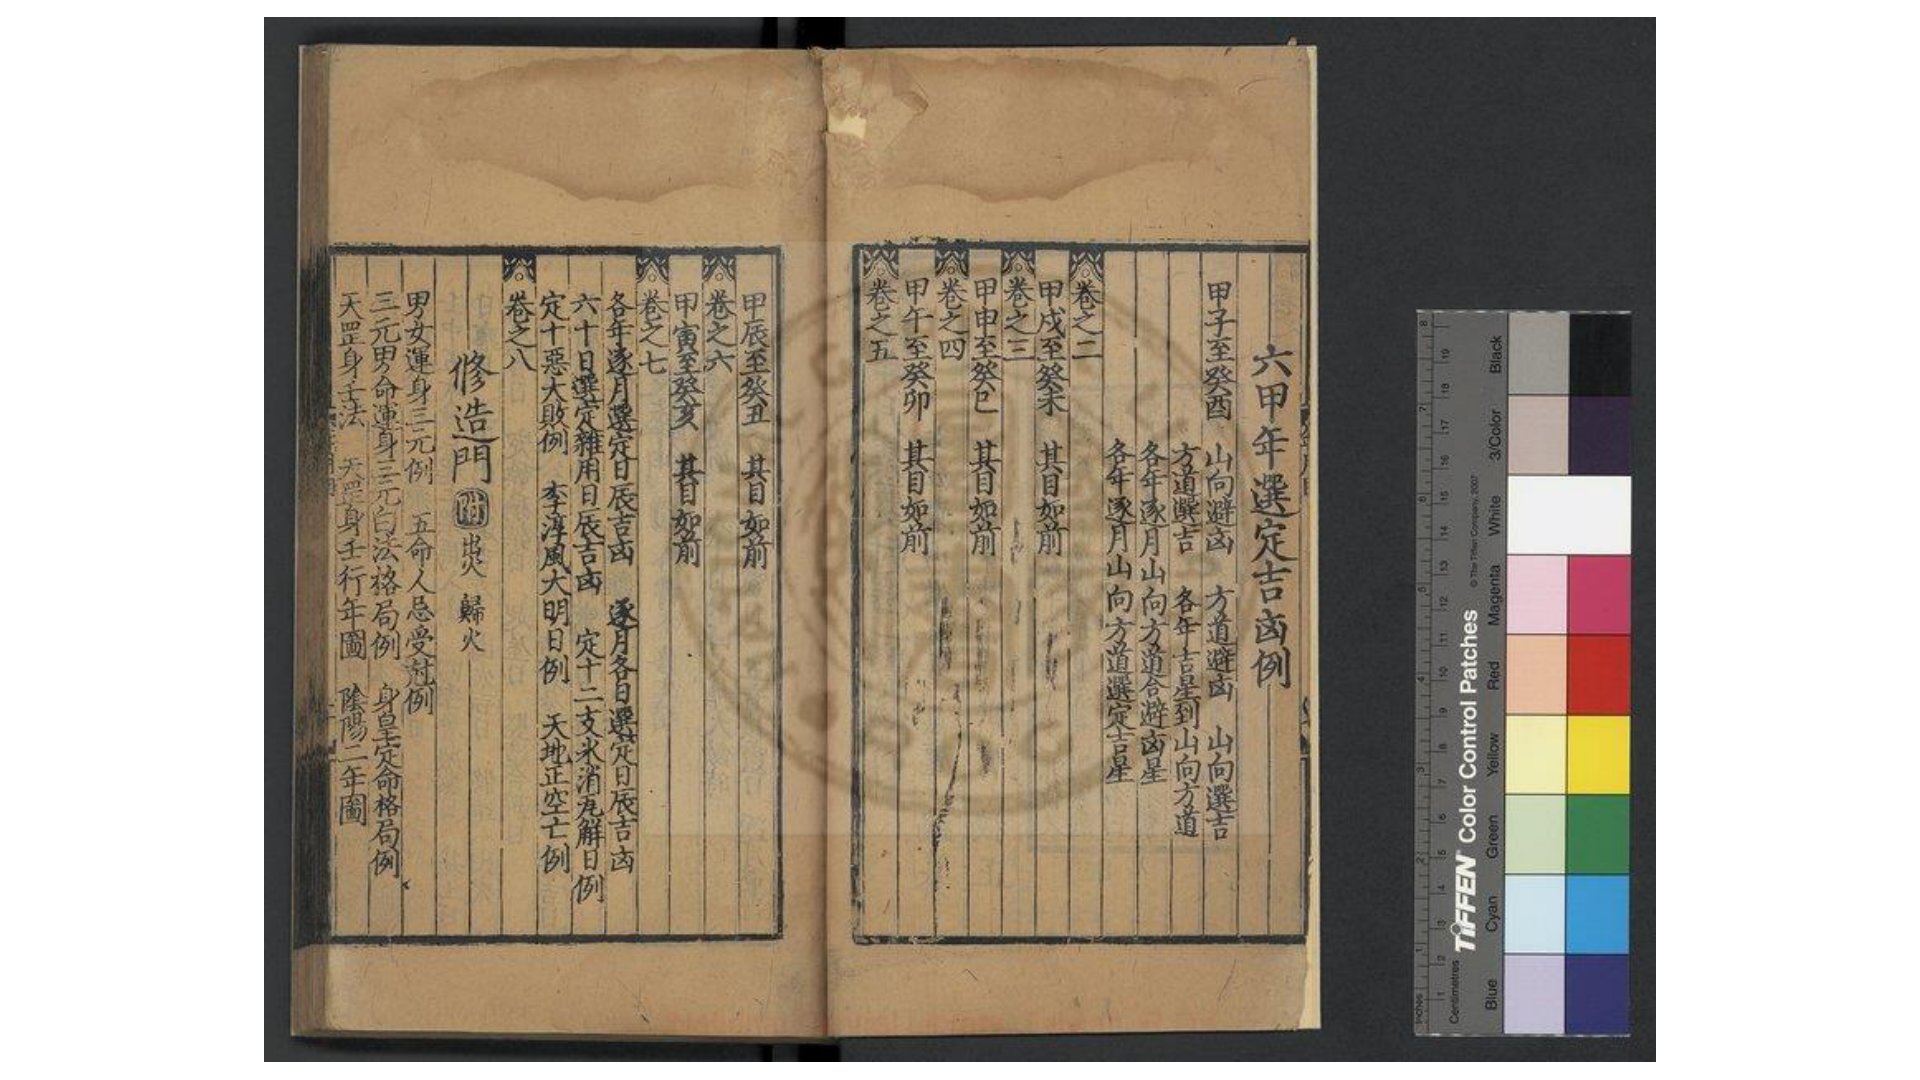 六甲年選定吉凶例
甲子至癸酉 山向避凶 方道避凶 山向選吉
方道選吉 各年吉星到山向方道
各年逐月山向方道合避凶星
各年逐月山向方道選定吉星
卷之二
甲戌至癸未 其目如前
卷之三
甲申至癸巳 其目如前
卷之四
甲午至癸卯 其目如前
卷之五
甲辰至癸丑 其目如前
卷之六
甲寅至癸亥 其目如前
卷之七
各年逐月選定日辰吉凶 逐月各日選定日辰吉凶
六十日選定雜用日辰吉凶 定十二支氷消瓦解日例
定十惡大敗例 李淳風大明日例 天地正空亡例
卷之八
修造門 附 出火 歸火
男女運身三元例 五命人忌受尅例
三元男命運身三元白法格局例 身皇定命格局例
天罡身壬法 天罡身壬行年圖 陰陽二年圖
TIFFEN Color Control Patches
© The Tiffen Company, 2007
Inches
Centimetres
Blue
Cyan
Green
Yellow
Red
Magenta
White
3/Color
Black